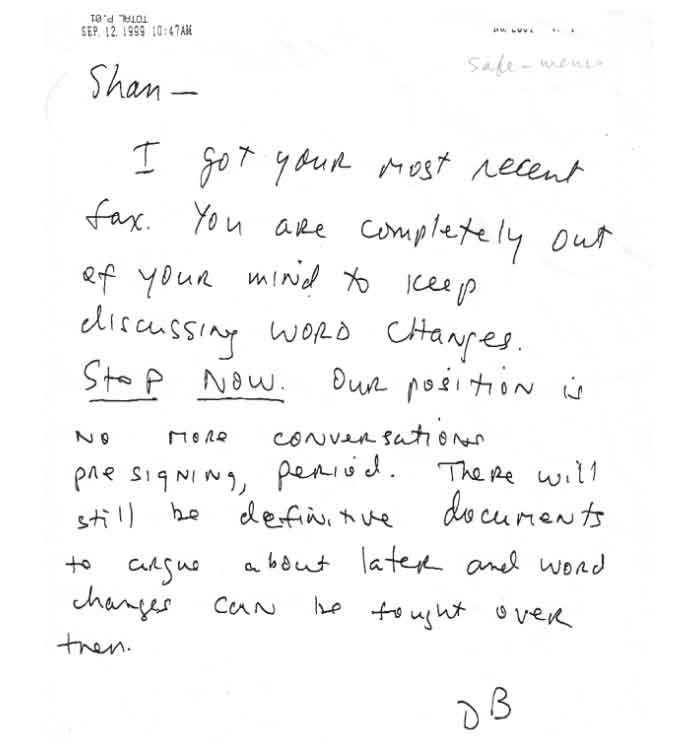 TOTAL P.01
SEP. 12. 1999 10:47AM
Safe-memo
Shan —
I got your most recent
fax. You are completely out
of your mind to keep
discussing WORD changes.
Stop NOW. Our position is
NO MORE conversations
presigning, period. There will
still be definitive documents
to argue about later and word
changes can be fought over
then.
DB